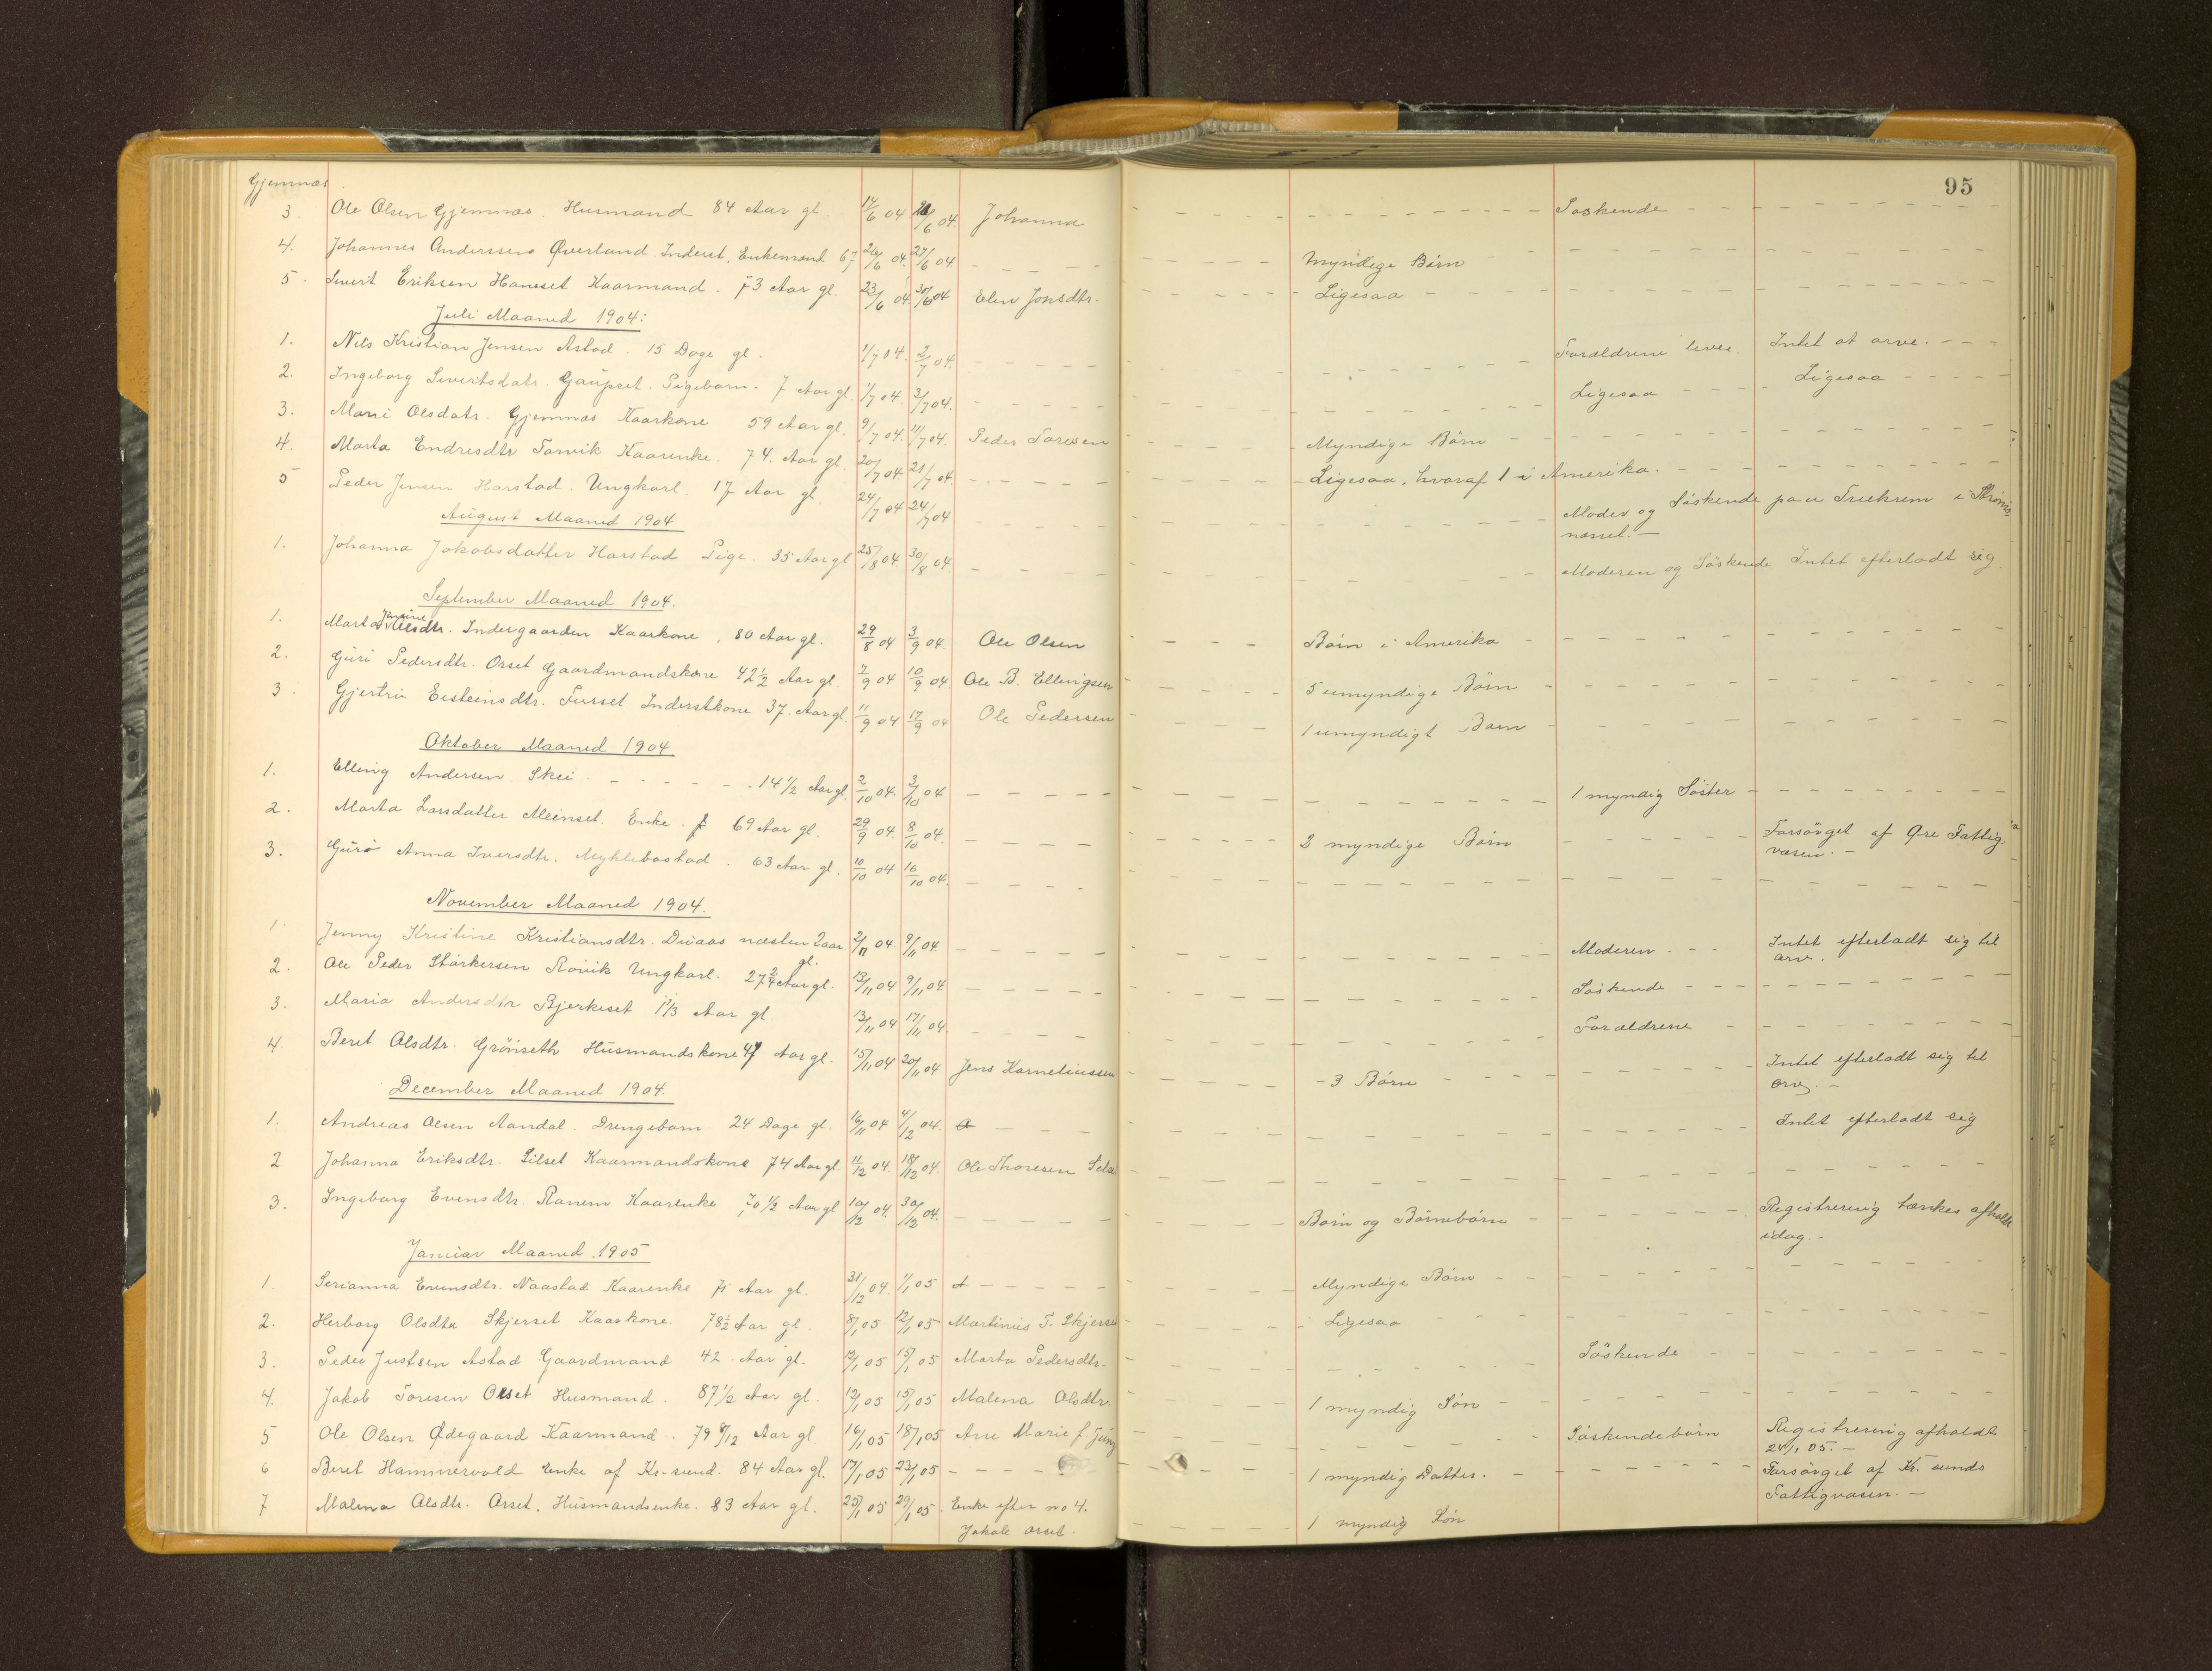 95
Gjemnæs
3. Ole Olsen Gjemnæs. Husmand 84 Aar gl. 14/6 04 /6 04. Johanna - - - Søskende - - -
4. Johannes Anderssens Øverland Inderst, Enkemand 67 20/6 04. 27/6 04. - - - Myndige Børn - - -
5. Sivert Eriksen Hanset Kaarmand. 73 Aar gl. 23/6 04 30/6 04 Elen Jonsdtr. - - - Ligesaa - - -
Juli Maaned 1904:
1. Nils Kristian Jensen Astad. 15 Dage gl. 1/7 04. 2/7 04. - - - Forældrene lever. Intet at arve. - - -
2. Ingeborg Sivertsdatr. Gaupset. Pigebarn. 7 Aar gl. 1/7 04. 3/7 04. - - - Ligesaa - - - Ligesaa - - -
3. Mari Olsdatr. Gjemnæs Kaarkone 59 Aar gl. 9/7 04. 11/7 04. Peder Toresen - - - Myndige Børn - - -
4. Marta Endresdtr Torvik Kaarenke. 74. Aar gl. 20/7 04. 21/7 04. - - - Ligesaa, hvoraf 1 i Amerika. - - -
5 Peder Jensen Harstad. Ungkarl. 17 Aar gl. 24/7 04 24/7 04 - - - Moder og Søskende paa Trekrem i
næsset. -
August Maaned 1904
1. Johanna Jakobsdatter Harstad Pige. 35 Aar gl 25/8 04. 30/8 04. - - - Moderen og Søskende Intet efterladt sig.
September Maaned 1904.
1. Marta Olsdtr. Indergaarden Kaarkone, 80 Aar gl. 29/8 04 3/9 04. Ole Olsen - - - Børn i Amerika - - -
2. Guri Pedersdtr. Orset Gaardmandskone 42½ Aar gl. 7/9 04 10/9 04. Ole B. Ellingsen - - - 5 umyndige Børn - - -
3. Gjertru Eisteinsdtr. Furset Inderstkone 37. Aar gl. 11/9 04 17/9 04 Ole Pedersen - - - 1 umyndigt Barn - - -
Oktober Maaned 1904
1. Elling Andersen Skei. - - - 14½ Aar gl. 2/10 04. 3/10 04 - - - 1 myndig Søster - - -
2. Marta Larsdatter Meinset. Enke. 69 Aar gl. 29/9 04. 8/10 04. - - - 2 myndige Børn - - - Forsørget af Øre Fattig
væsen. -
3. Guro Anna Iversdtr. Myklebostad. 63 Aar gl. 10/10 04 16/10 04. - - -
November Maaned 1904.
1 Jenny Kristine Kristiansdtr. Duaas næsten 2 aar gl. 2/11 04. 9/11 04. - - - Moderen. - - Intet efterladt sig til
arv.
2. Ole Peder Størkersen Rövik Ungkarl. 27 Aar gl. 13/11 04 9/11 04. - - - Søskende - - -
3. Maria Andersdtr Bjerkeset 1 1/3 Aar gl. 13/11 04 17/11 04. - - - Forældrene - - -
4. Beret Olsdtr. Grönseth Husmandskone 47 Aar gl. 15/11 04 20/11 04 Jens Korneliussen - - - 3 Børn - - - Intet efterladt sig til
arv. -
December Maaned 1904.
1. Andreas Olsen Aandal. Drengebarn 24 Dage gl. 16/11 04 4/12 04. - - - Intet efterladt sig
2 Johanna Eriksdtr. Silset Kaarmandskone 74 Aar gl. 11/12 04. 18/12 04. Ole Thoresen - - -
3. Ingeborg Evensdtr. Ranem Kaarenke 70½ Aar gl 10/12 04. 30/12 04. - - - Børn og Børnebørn - - - Registrering tænkes afholdt
idag. -
Januar Maaned 1905
1. Serianna Evensdtr. Naastad Kaarenke 71 Aar gl. 31/12 04. 1/1 05 - - - Myndige Børn - - -
2. Herborg Olsdtr Skjerset Kaarkone. 78½ Aar gl. 8/1 05 12/1 05 Martinus T. Skjerse - - - Ligesaa - - -
3. Peder Justsen Astad Gaardmand 42 Aar gl. 12/1 05 15/1 05 Marta Pedersdtr. - - - Søskende - - -
4. Jakob Toresen Orset Husmand. 87½ Aar gl. 12/1 05 15/1 05 Malena Olsdtr. - - - 1 myndig Søn - - -
5 Ole Olsen Ødegaard Kaarmand. 79 8/12 Aar gl. 16/1 05 18/1 05 Ane Marie f. - - - Søskendebörn Registrering afholdt
24/1 05. -
6 Beret Hammervold Enke af Kr-sund. 84 Aar gl. 17/1 05 23/1 05 - - - 1 myndig Datter. - - - Forsørget af Kr. sunds
Fattigvæsen. -
7 Malena Olsdtr. Orset. Husmandsenke. 83 Aar gl. 25/1 05 29/1 05. Enke efter no 4. - - - 1 myndig Søn
Jakob Orset.